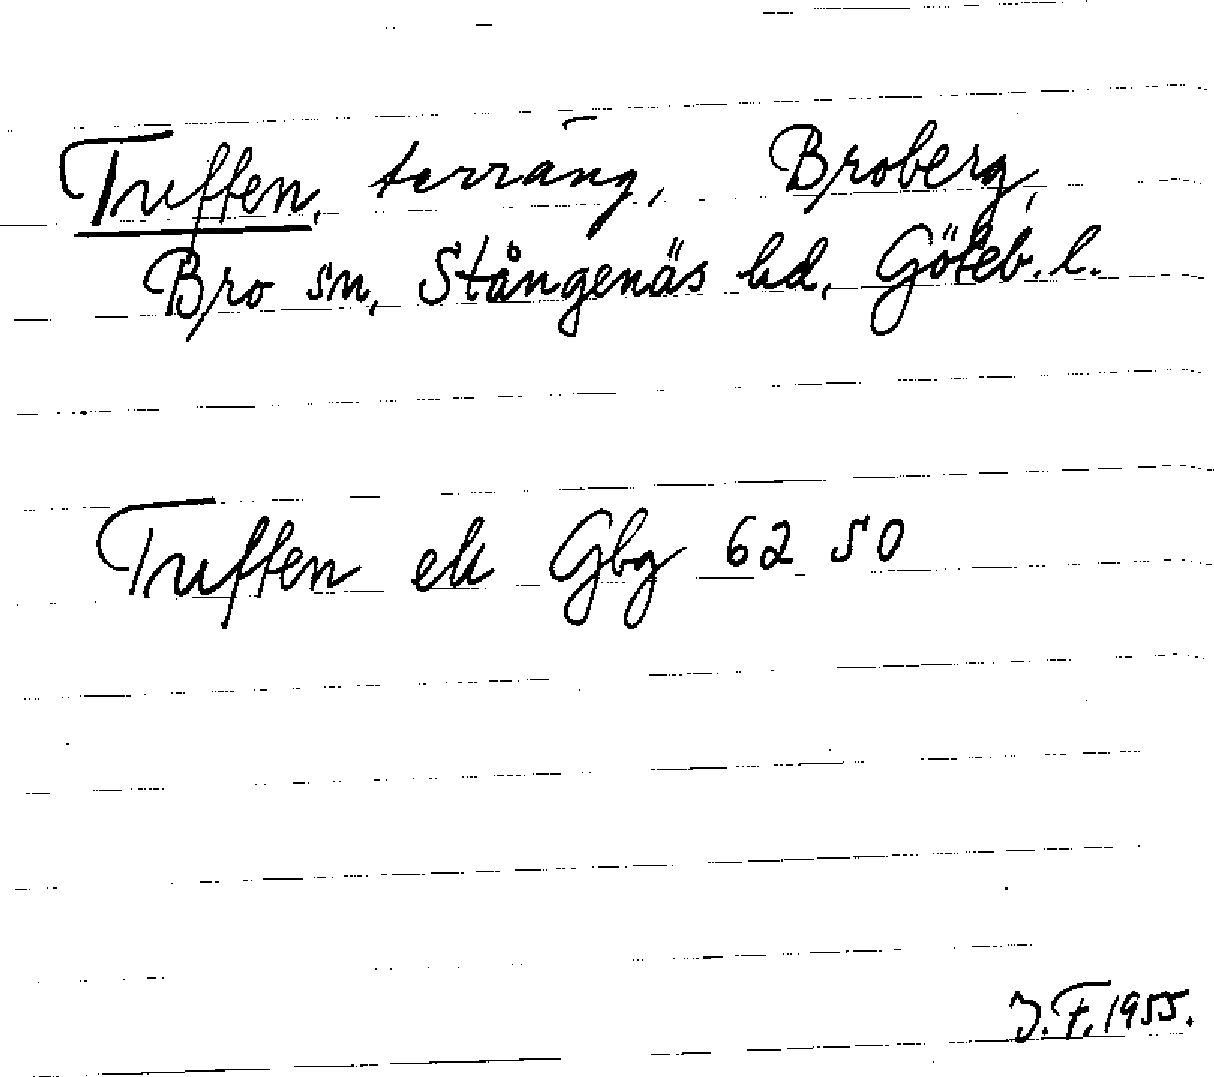 Truften, terräng, Broberg,
Bro sn, Stångenäs hd, Göteb. l.
Truften ek Gbg 62 50
J. F. 1955.